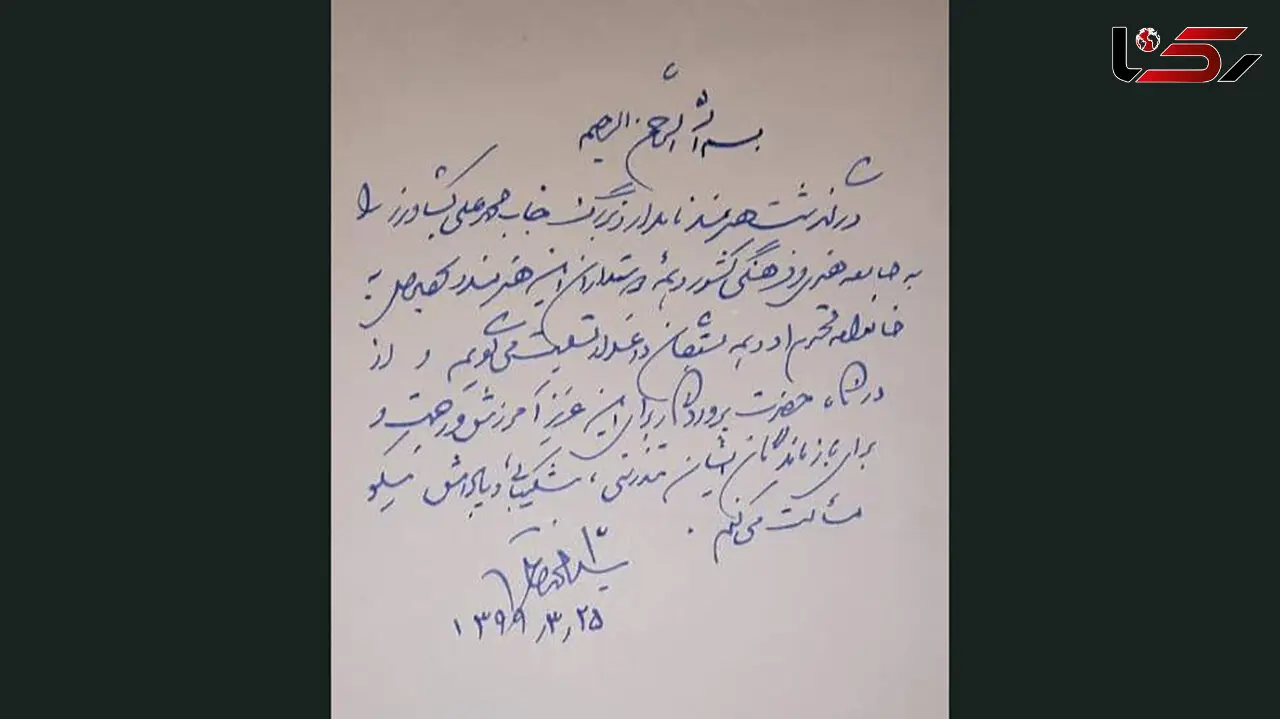 رکنا
بسم الله الرحمن الرحیم
درگذشت هنرمند نامدار و بزرگ جناب محمدعلی کشاورز را
به جامعه هنری و فرهنگی کشور و همه دوستداران این هنرمند و
خانواده محترم او و همه داغدار تسلیت می‌گویم و از
درگاه حضرت پروردگار برای این عزیز آمرزش و رحمت و
برای بازماندگان ایشان تندرستی، شکیبایی و پاداش نیکو
مسألت می‌کنم.
۱۳۹۹٫۳٫۲۵